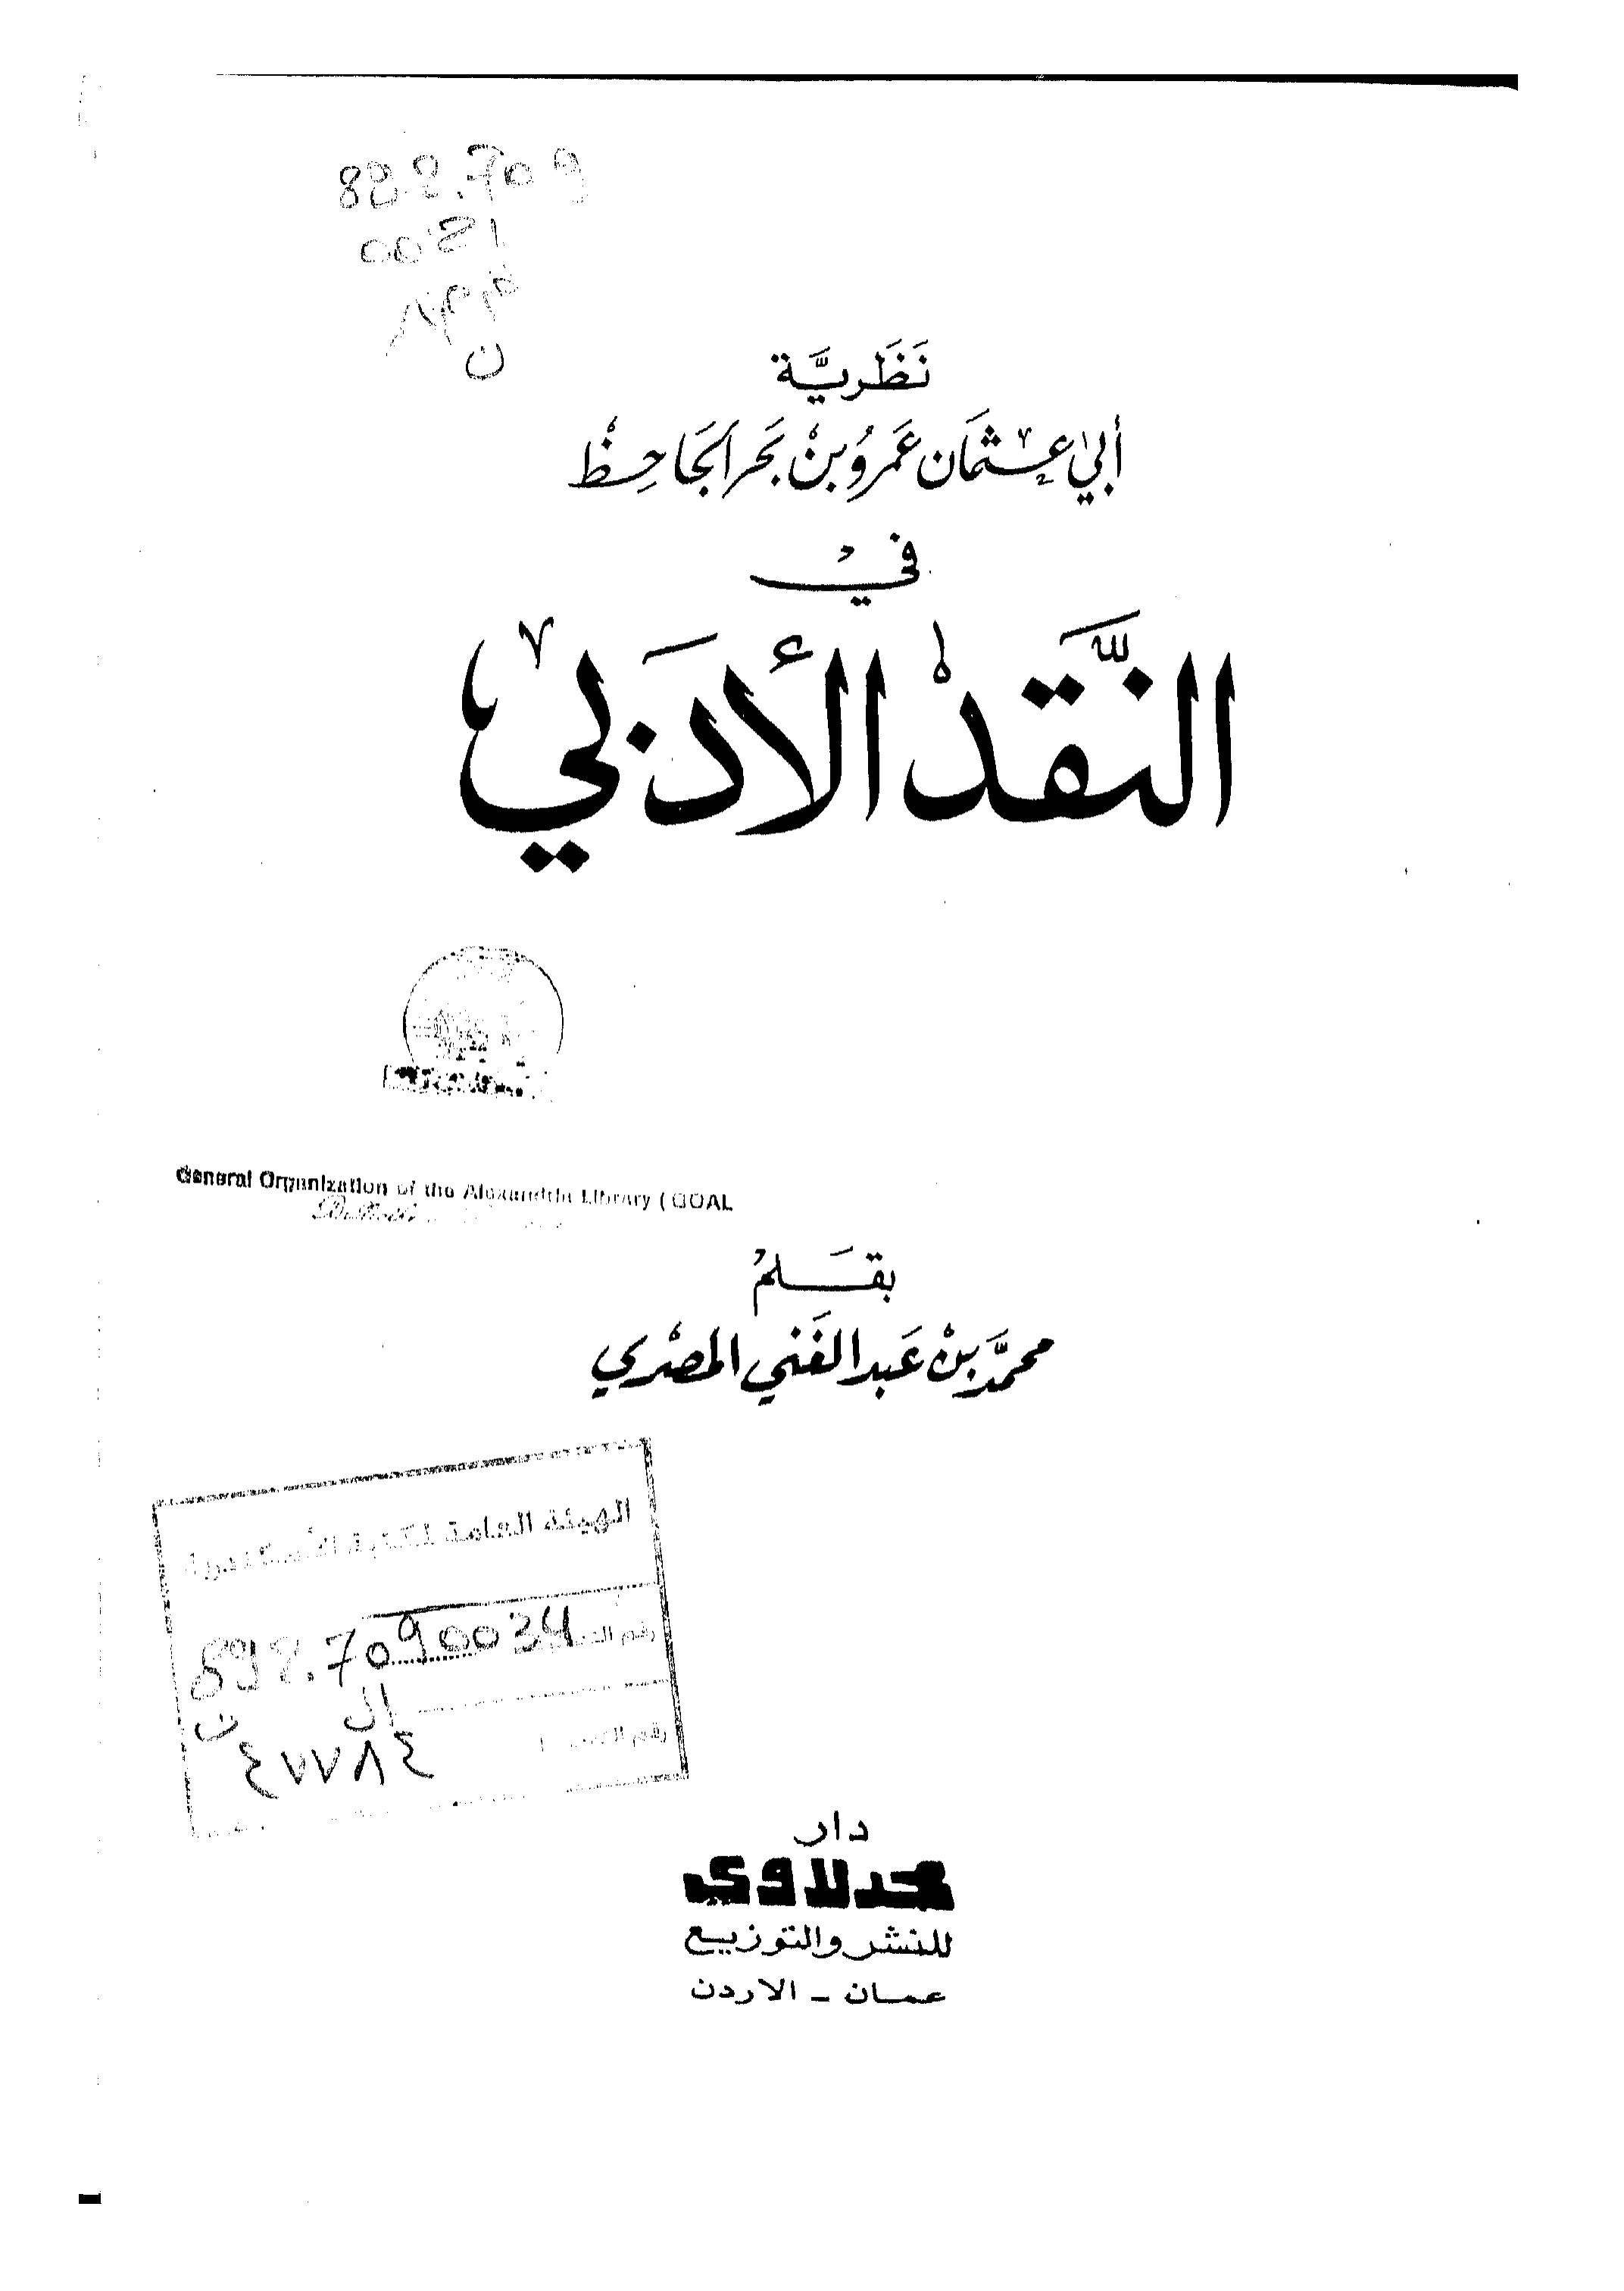 نَظَريَّة
أبي عثمَان عَمرُو بنْ بَحر الجَاحِظْ
في
النَّقد الأدَبي
General Organization of the Alexandria Library (GOAL
بقَلمُ
محمَّد بنْ عَبد الغَني المصْري
الهيئة العامة لمكتبة الأسكندرية
رقم
892.7090034
ن
٤٧٧٨٤
رقم
دار
مجدلاوي
للنشر والتوزيع
عمان - الاردن